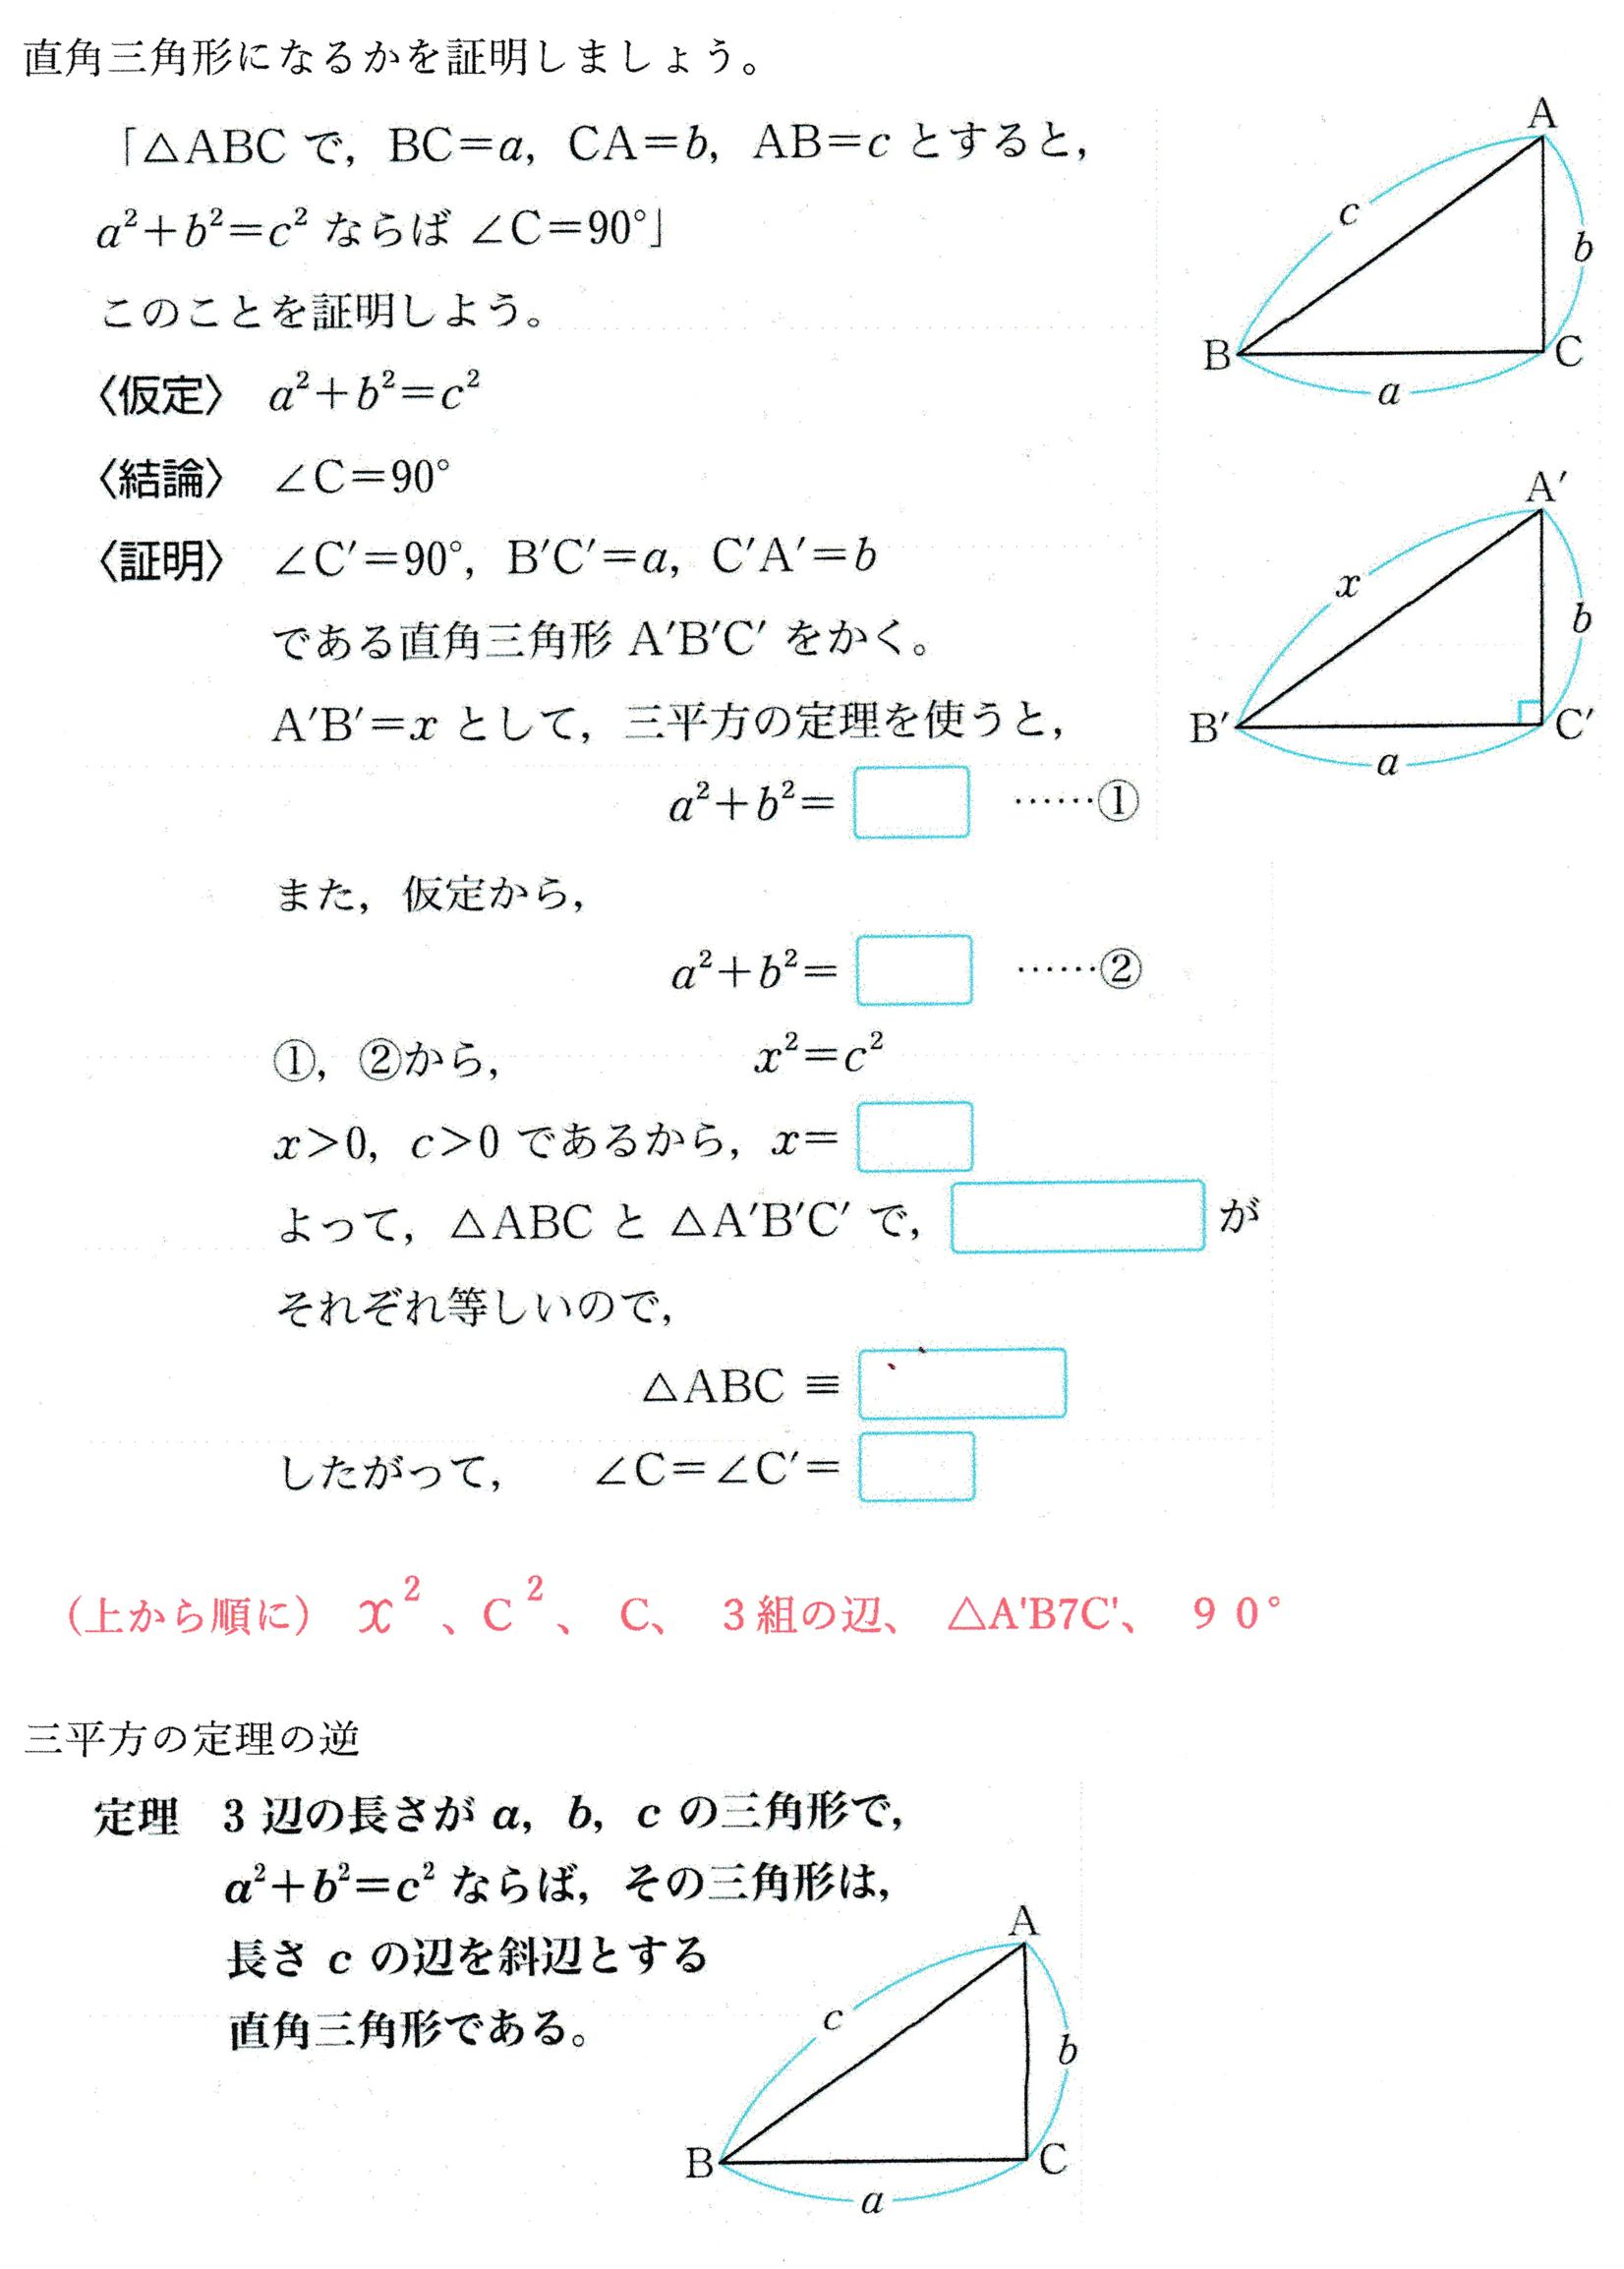 直角三角形になるかを証明しましょう。
「△ABC で，BC=a，CA=b，AB=c とすると，
a²+b²=c² ならば ∠C=90°」
このことを証明しよう。
〈仮定〉 a²+b²=c²
〈結論〉 ∠C=90°
〈証明〉 ∠C′=90°，B′C′=a，C′A′=b
である直角三角形 A′B′C′ をかく。
A′B′=x として，三平方の定理を使うと，
a²+b²= ……①
また，仮定から，
a²+b²= ……②
①，②から， x²=c²
x>0，c>0 であるから，x=
よって，△ABC と △A′B′C′ で， が
それぞれ等しいので，
△ABC ≡
したがって， ∠C=∠C′=
A
c
b
B
C
a
A′
x
b
B′
C′
a
（上から順に） x²、C²、 C、 3組の辺、 △A'B7C'、 90°
三平方の定理の逆
定理 3 辺の長さが a，b，c の三角形で，
a²+b²=c² ならば，その三角形は，
長さ c の辺を斜辺とする
直角三角形である。
A
c
b
B
C
a